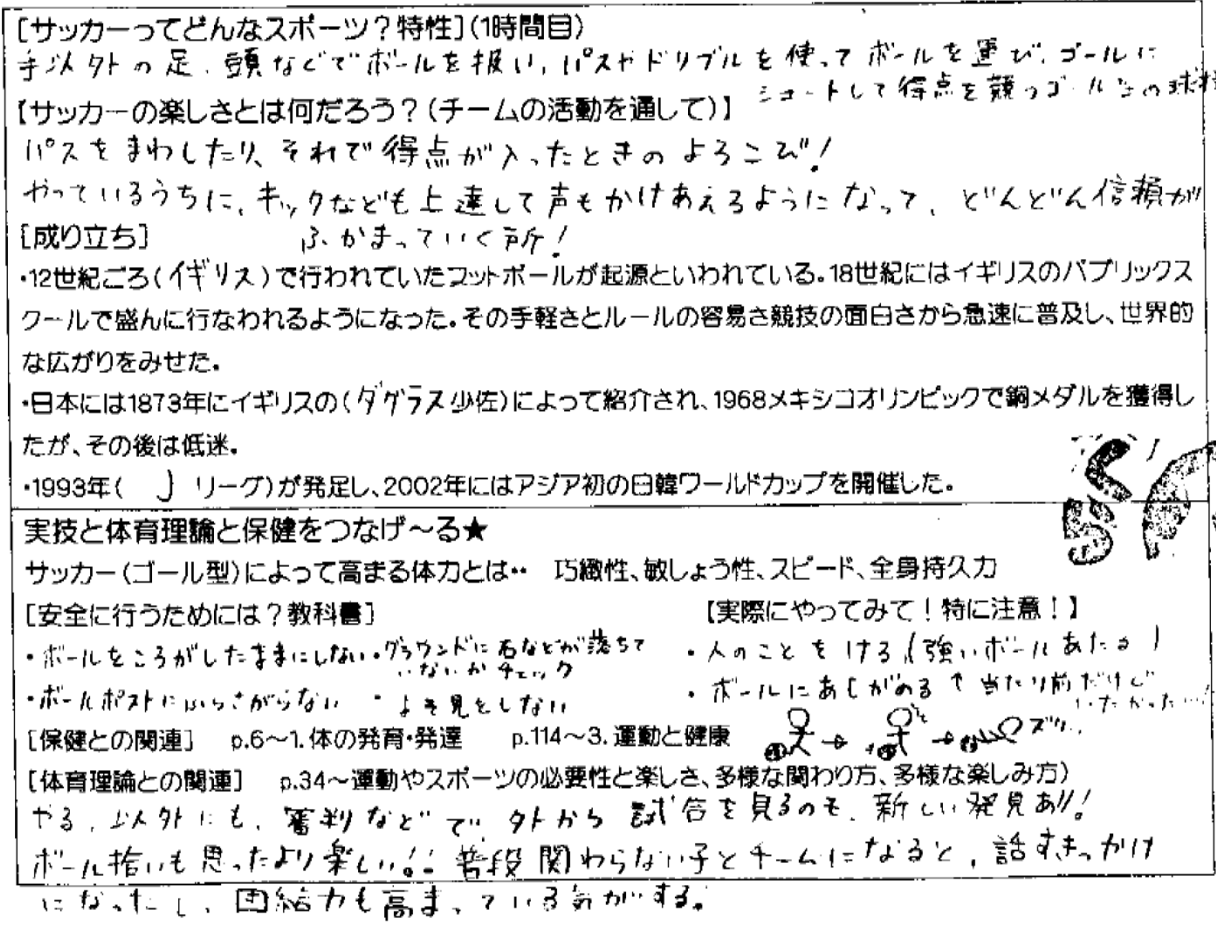 [サッカーってどんなスポーツ?特性](1時間目)
手以外の足、頭などでボールを扱い、パスやドリブルを使ってボールを運び、ゴールに
シュートして得点を競うゴール型の球技
【サッカーの楽しさとは何だろう?(チームの活動を通して)】
パスをまわしたり、それで得点が入ったときのよろこび!
やっているうちに、キックなども上達して声もかけあえるようになって、どんどん信頼が
ふかまっていく所!
[成り立ち]
・12世紀ごろ(イギリス)で行われていたフットボールが起源といわれている。18世紀にはイギリスのパブリックス
クールで盛んに行なわれるようになった。その手軽さとルールの容易さ競技の面白さから急速に普及し、世界的
な広がりをみせた。
・日本には1873年にイギリスの(ダグラス少佐)によって紹介され、1968メキシコオリンピックで銅メダルを獲得し
たが、その後は低迷。
・1993年( J リーグ)が発足し、2002年にはアジア初の日韓ワールドカップを開催した。
実技と体育理論と保健をつなげ~る★
サッカー(ゴール型)によって高まる体力とは・・ 巧緻性、敏しょう性、スピード、全身持久力
[安全に行うためには?教科書]
・ボールをころがしたままにしない・グラウンドに石などが落ちて
いないかチェック
・ボールポストにぶらさがらない ・よそ見をしない
【実際にやってみて!特に注意!】
・人のことをける(強いボールあたる)
・ボールにあしがのる↑当たり前だけど
いたかった…!
[保健との関連] p.6~1.体の発育・発達 p.114~3.運動と健康
[体育理論との関連] p.34~運動やスポーツの必要性と楽しさ、多様な関わり方、多様な楽しみ方)
やる、以外にも、審判などで、外から試合を見るのも、新しい発見あり!
ボール拾いも思ったより楽しい!! 普段関わらない子とチームになると、話すきっかけ
になったし、団結力も高まっている気がする。